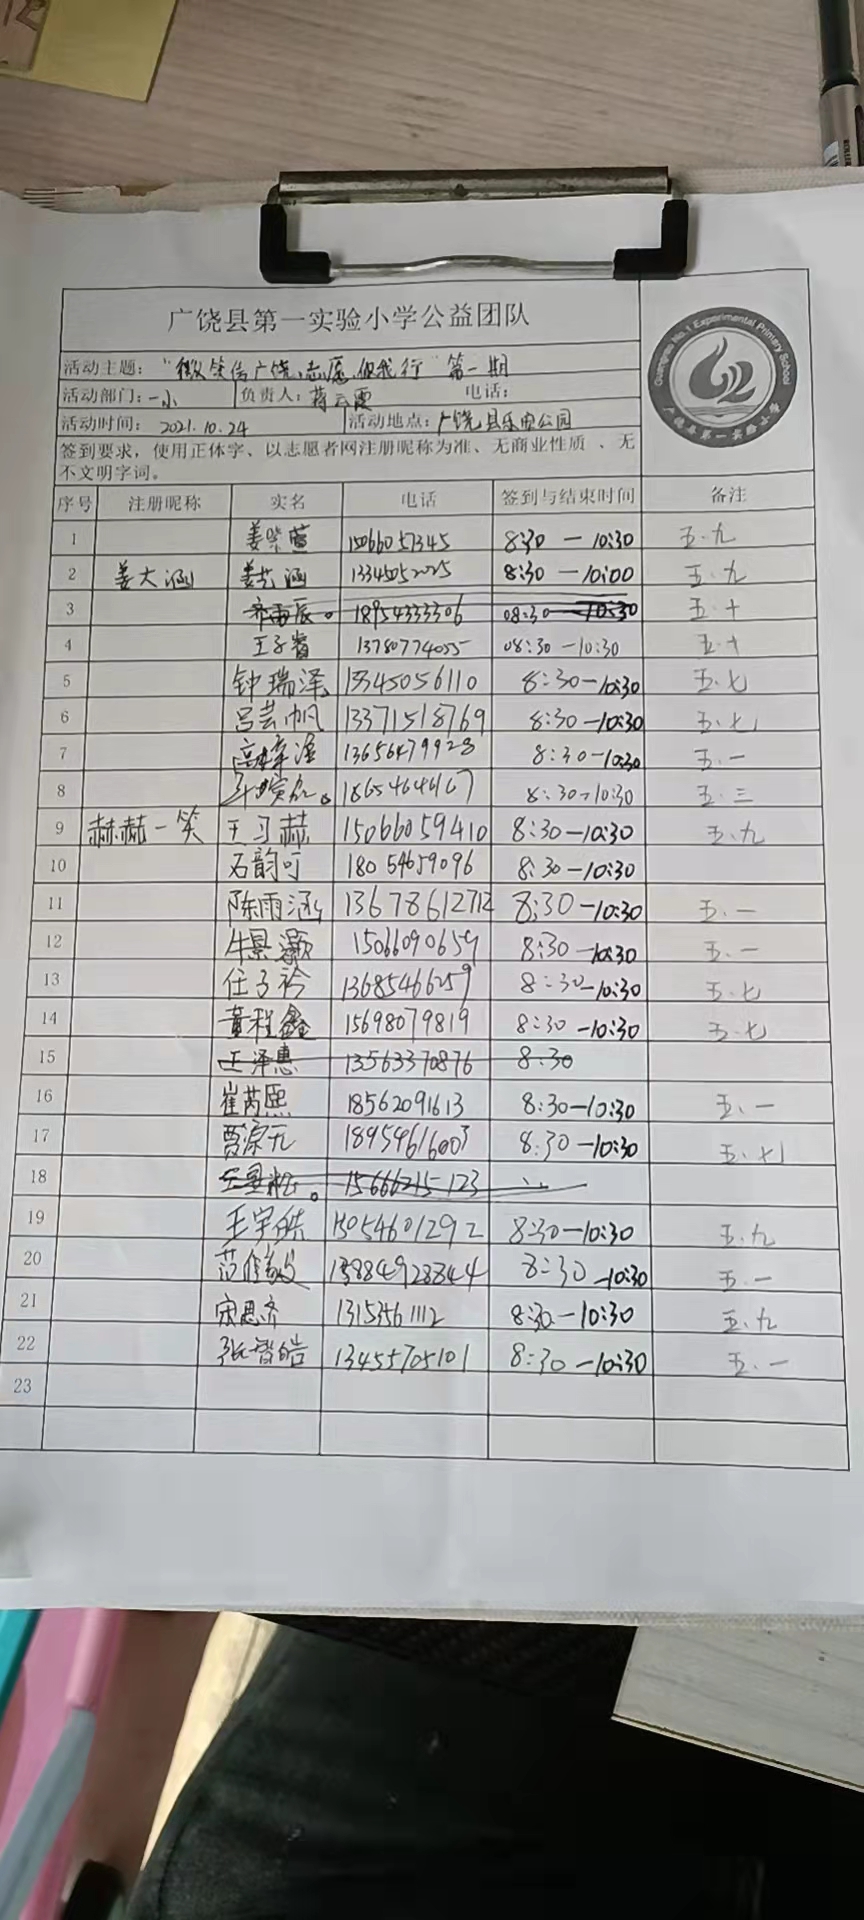 广饶县第一实验小学公益团队
Guangrao No.1 Experimental Primary School
广饶县第一实验小学
活动主题：“微笑传广饶，志愿你我行”第一期
活动部门：一小 负责人：蒋云霞 电话：
活动时间： 2021.10.24 活动地点：广饶县乐安公园
签到要求，使用正体字、以志愿者网注册昵称为准、无商业性质 、无
不文明字词。
序号 注册昵称 实名 电话 签到与结束时间 备注
1 姜紫萱 15066057345 8:30 — 10:30 五.九
2 姜大涵 姜艺涵 13345052025 8:30 — 10:00 五.九
3 18954333306 08:30 — 10:30 五.十
4 王子睿 13780774055 08:30 — 10:30 五.十
5 钟瑞泽 15345056110 8:30 — 10:30 五.七
6 吕芸帆 13371518769 8:30 — 10:30 五.七
7 13656479928 8:30 — 10:30 五.一
8 8:30 — 10:30 五.三
9 赫赫一笑 王习赫 15066059410 8:30 — 10:30 五.九
10 石韵可 18054659096 8:30 — 10:30
11 陈雨涵 13678612712 8:30 — 10:30 五.一
12 牛景灏 15066090659 8:30 — 10:30 五.一
13 任子衿 13685466259 8:30 — 10:30 五.七
14 董程鑫 15698079819 8:30 — 10:30 五.七
15 王泽惠 13563370876 8:30
16 崔芮熙 18562091613 8:30 — 10:30 五.一
17 贾宗元 18954616003 8:30 — 10:30 五.七
18 15666215123
19 王宇皓 15054601292 8:30 — 10:30 五.九
20 13884928844 8:30 — 10:30 五.一
21 宋思齐 13153561112 8:30 — 10:30 五.九
22 张智皓 13455705101 8:30 — 10:30 五.一
23